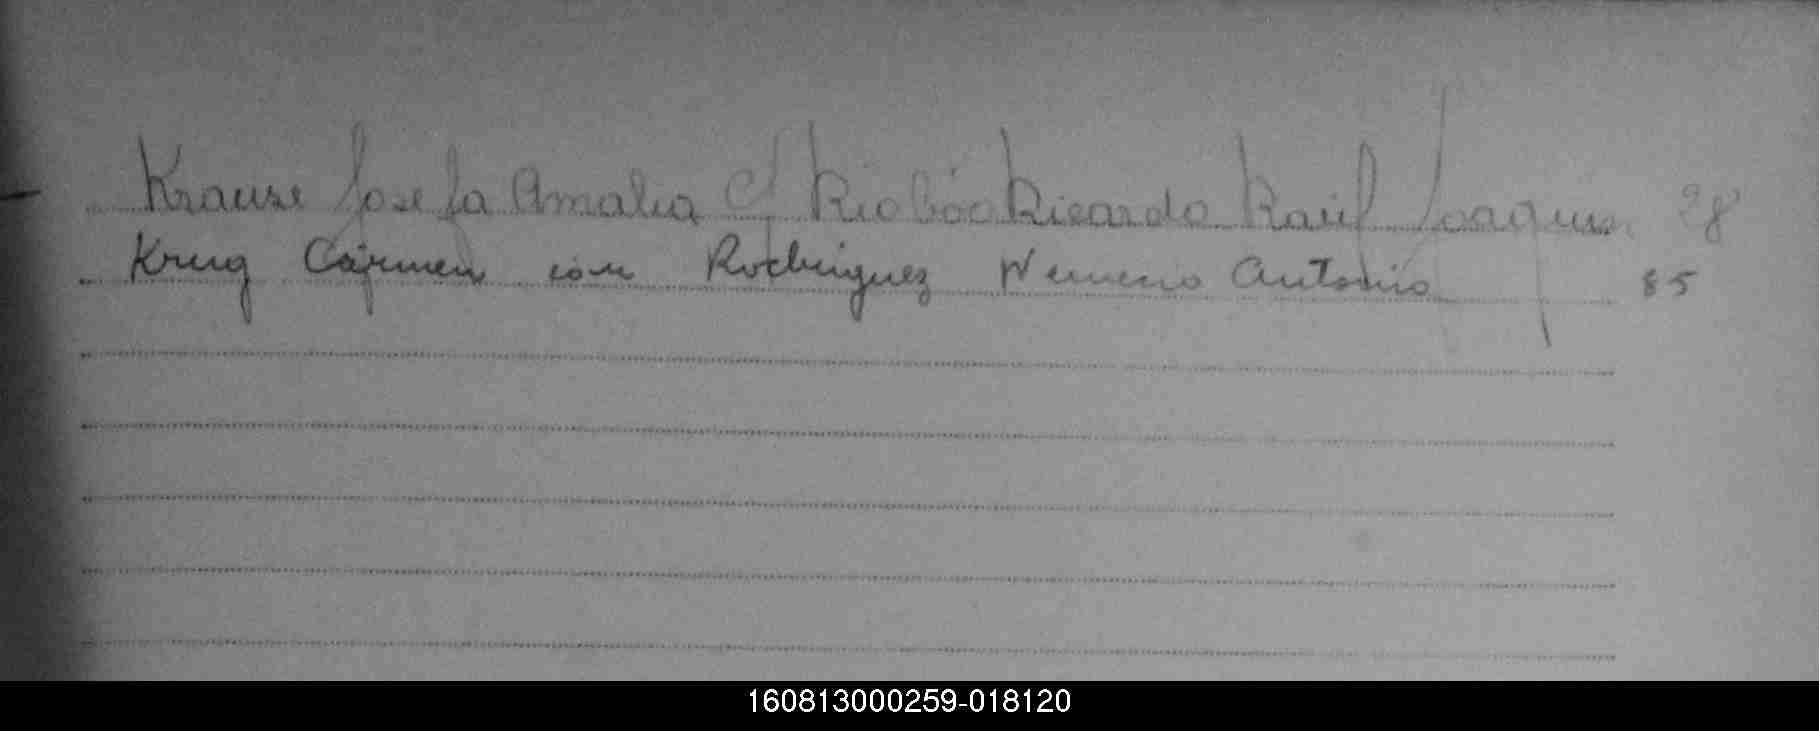 Krause Josefa Amalia C/ Riobóo Ricardo Raúl Joaquin 28
Krug Carmen con Rodriguez Nemesio Antonio 85
160813000259-018120